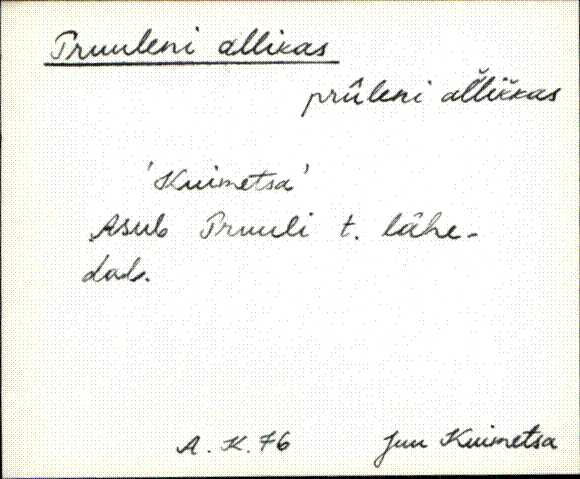 Pruuleni allikas
prûleni al̆lik̆kas
'Kuimetsa'
Asub Pruuli t. lähe-
dal.
A. K. 76 Juu Kuimetsa